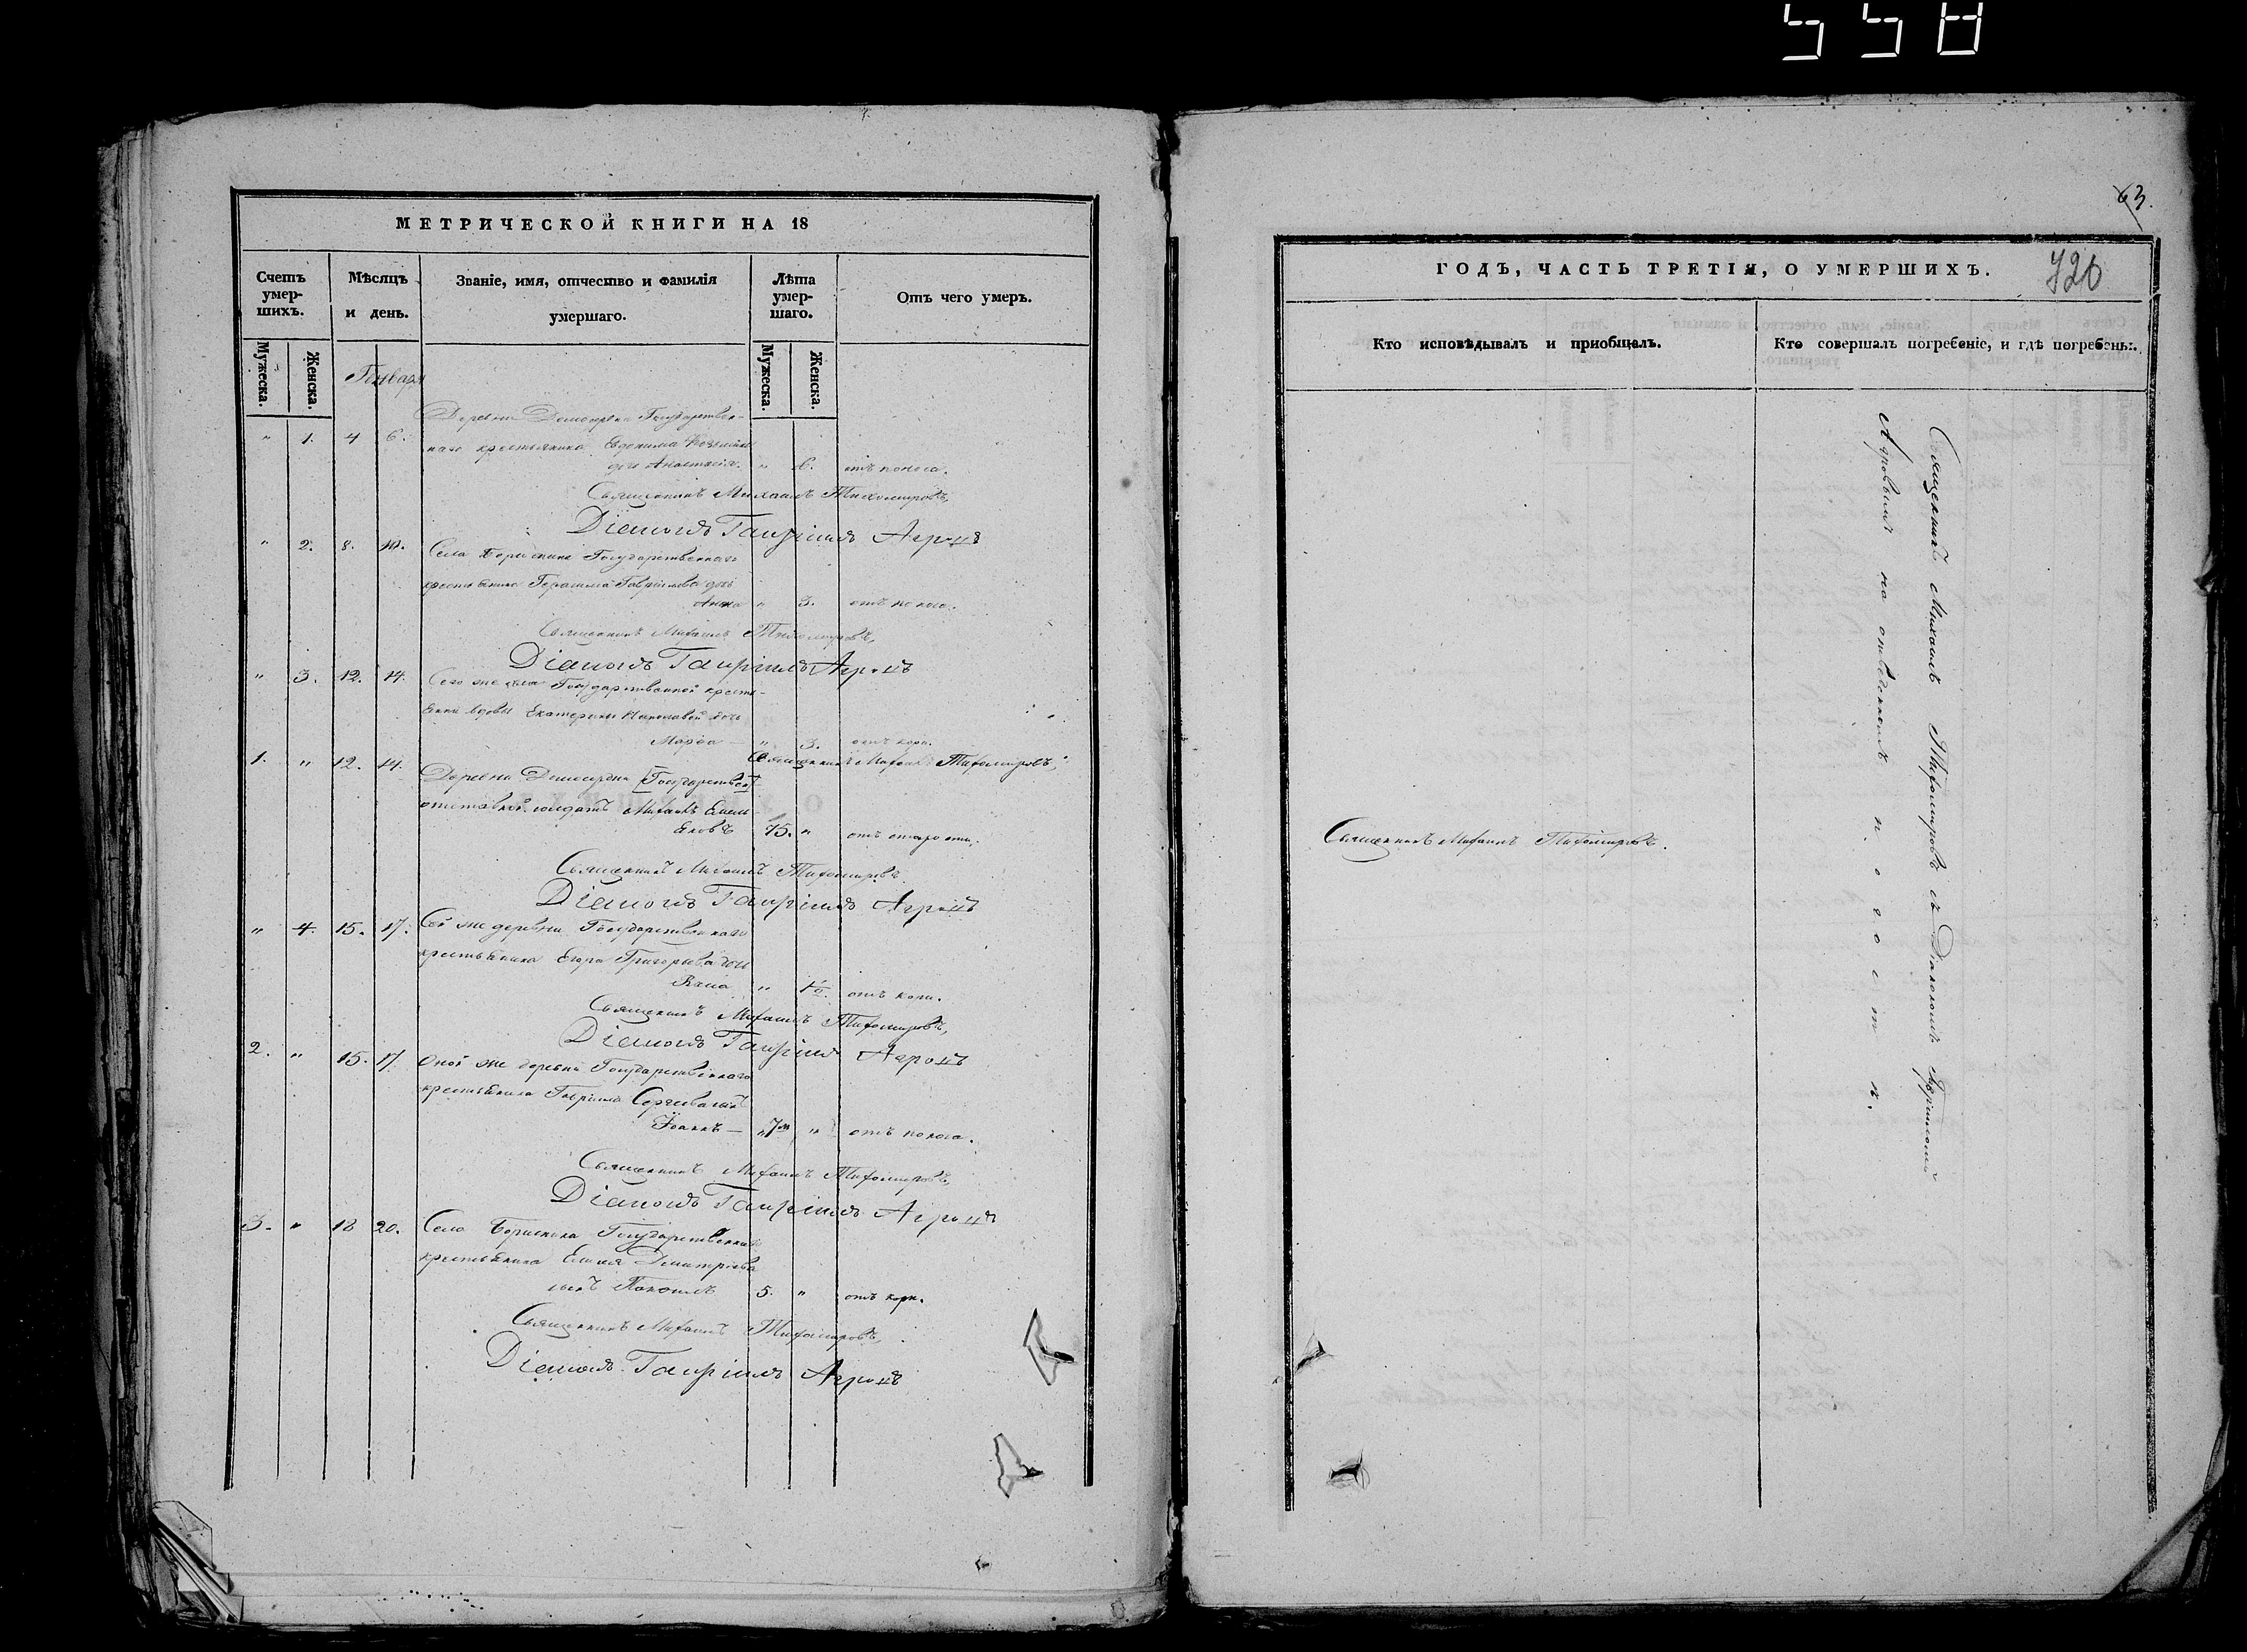 558
МЕТРИЧЕСКОЙ КНИГИ НА 18
Счетъ умер-шихъ.
Мѣсяцъ и день.
Званіе, имя, отчество и фамилія умершаго.
Лѣта умер-шаго.
Отъ чего умеръ.
Мужеска. Женска.
Мужеска. Женска.
Генваря
" 1. 4 6. Деревни Государствен-
наго крестьянина Евдокима
дочь Анастасія. " 6. отъ поноса.
Священникъ Михаилъ Тихомировъ,
Діаконъ Гавріилъ Агровъ
" 2. 8. 10. Села Борискина Государственнаго
крестьянина Герасима Гаврилова дочь
Анна " 3. отъ поноса.
Священникъ Михаилъ Тихомировъ,
Діаконъ Гавріилъ Агровъ
" 3. 12. 14. Сего же села Государственной кресть-
янки вдовы Екатерины дочь
Марѳа — " 3. отъ кори.
Священникъ Михаилъ Тихомировъ,
1. " 12. 14. Деревни [Государствен]
отставной солдатъ Михаилъ Емель-
яновъ 75. " отъ старости.
Священникъ Михаилъ Тихомировъ
Діаконъ Гавріилъ Агровъ
" 4. 15. 17. Сей же деревни Государственнаго
крестьянина Егора Григорьева дочь
" 1½. отъ кори.
Священникъ Михаилъ Тихомировъ,
Діаконъ Гавріилъ Агровъ
2. " 15. 17. Оной же деревни Государственнаго
крестьянина Гаврила Сергѣева сынъ
Іоаннъ — "7м " отъ поноса.
Священникъ Михаилъ Тихомировъ,
Діаконъ Гавріилъ Агровъ
3. " 18 20. Села Борискина Государственнаго
крестьянина Дмитріева
сынъ 5. " отъ кори.
Священникъ Михаилъ Тихомировъ,
Діаконъ Гавріилъ Агровъ
63.
ГОДЪ, ЧАСТЬ ТРЕТІЯ, О УМЕРШИХЪ.
726
Кто исповѣдывалъ и приобщалъ.
Кто совершалъ погребеніе, и гдѣ погребены.
Священникъ Михаилъ Тихомировъ.
Священникъ Михаилъ Тихомировъ съ Діакономъ Гавріиломъ
Агровымъ на отведенномъ погостѣ.